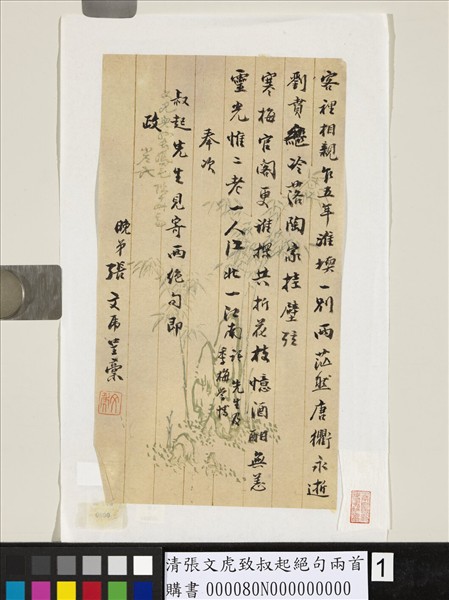 客裡相親乍五年淮壖一別兩茫然唐衢永逝
劉蕡繼冷落陶家挂壁弦
寒梅官閣更誰探共折花枝憶酒酣無恙
靈光惟二老一人江北一江南 先生及
奉次
叔起先生見寄兩絕句即
政
晚弟張文虎呈稾
清張文虎致叔起絕句兩首
購書 000080N000000000
1